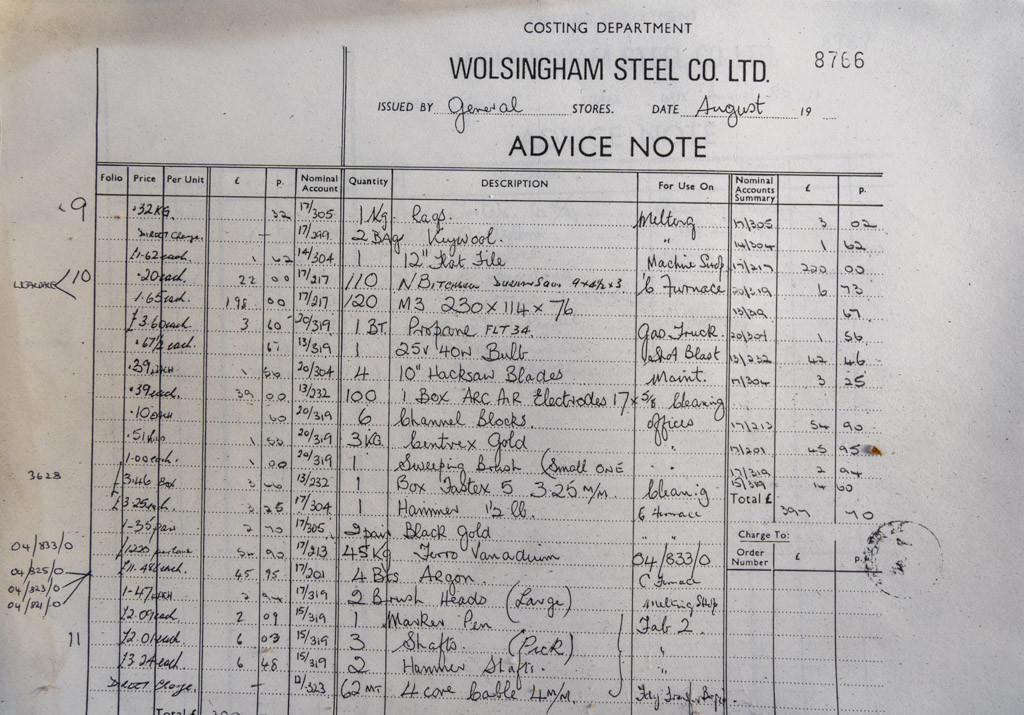 COSTING DEPARTMENT
WOLSINGHAM STEEL CO. LTD. 8766
ISSUED BY General STORES. DATE August 19
ADVICE NOTE
Folio Price Per Unit £ p. Nominal Account Quantity DESCRIPTION For Use On Nominal Accounts Summary £ p.
9 .32 KG. 32 17/305 1 Kg. Rags. Melting 17/305 3 02
Direct Charge. — 17/299 2 BAG Kaywool. " 14/304 1 62
£1.62 each 1 62 14/304 1 12" Flat File Machine Shop 17/217 220 00
10 .20 each 22 00 17/217 110 9 x 4½ x 3 C Furnace 20/319 6 73
1.65 each 198 00 17/217 120 M3 230 x 114 x 76 13/319 67
£3.60 each 3 60 20/319 1 BT. Propane FLT 34. Gas Truck 20/304 1 56
.67½ each 67 13/319 1 25V 40W Bulb Shot Blast 13/232 42 46
.39 each 1 56 20/304 4 10" Hacksaw Blades Maint. 17/304 3 25
.39 each 39 00 13/232 100 1 Box ARC AIR Electrodes 17 x 5/8 Cleaning
.10 each 60 20/319 6 Channel Blocks. offices 17/213 54 90
.51 1 20/319 3 KG. Centrex Gold " 17/201 45 95
1.00 each. 1 00 20/319 1 Sweeping Brush (Small ONE " 17/319 2 94
3628 £3.46 Box 3 46 13/232 1 Box Fastex 5 3.25 M/M. Cleanig 15/319 14 60
Total £ 397 70
£3.25 each 3 25 17/304 1 Hammer 1½ lb. C Furnace
1-35 pair 2 70 17/305 2 pair Black Gold " "
Charge To:
Order Number £ p.
04/833/0 £1220 per tonne 54 90 17/213 45 Kg Ferro Vanadium 04/833/0
04/825/0 £11.48¾ each. 45 95 17/201 4 Bts Argon. C Furnace
04/823/0
04/821/0 1-47 each 2 94 17/319 2 Brush Heads (Large) Melting Shop
£2.09 each 2 09 15/319 1 Marker Pen Fab 2.
11 £2.01 each 6 03 15/319 3 Shafts (Pick) "
£3.24 each. 6 48 15/319 2 Hammer Shafts. "
Direct Charge. — 12/323 62 MT 4 core Cable 4 M/M.
Total £